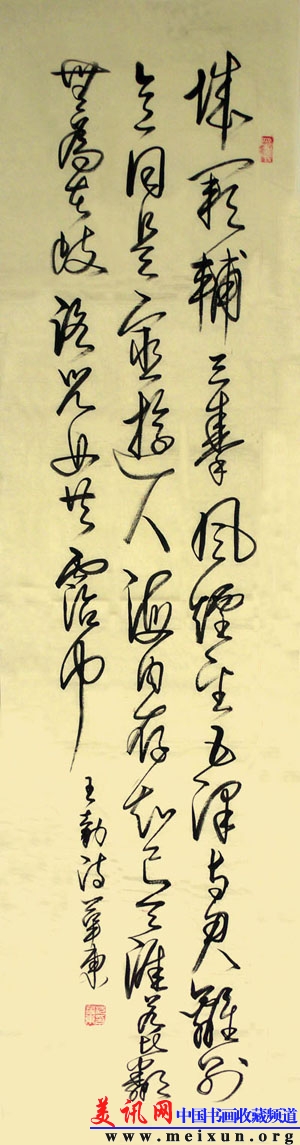 城闕輔三秦風煙望五津与君離別
意同是宦遊人海内存知己天涯若比鄰
無為在歧路兒女共霑巾
王勃诗
美讯网 中国书画收藏频道
www.meixun.org